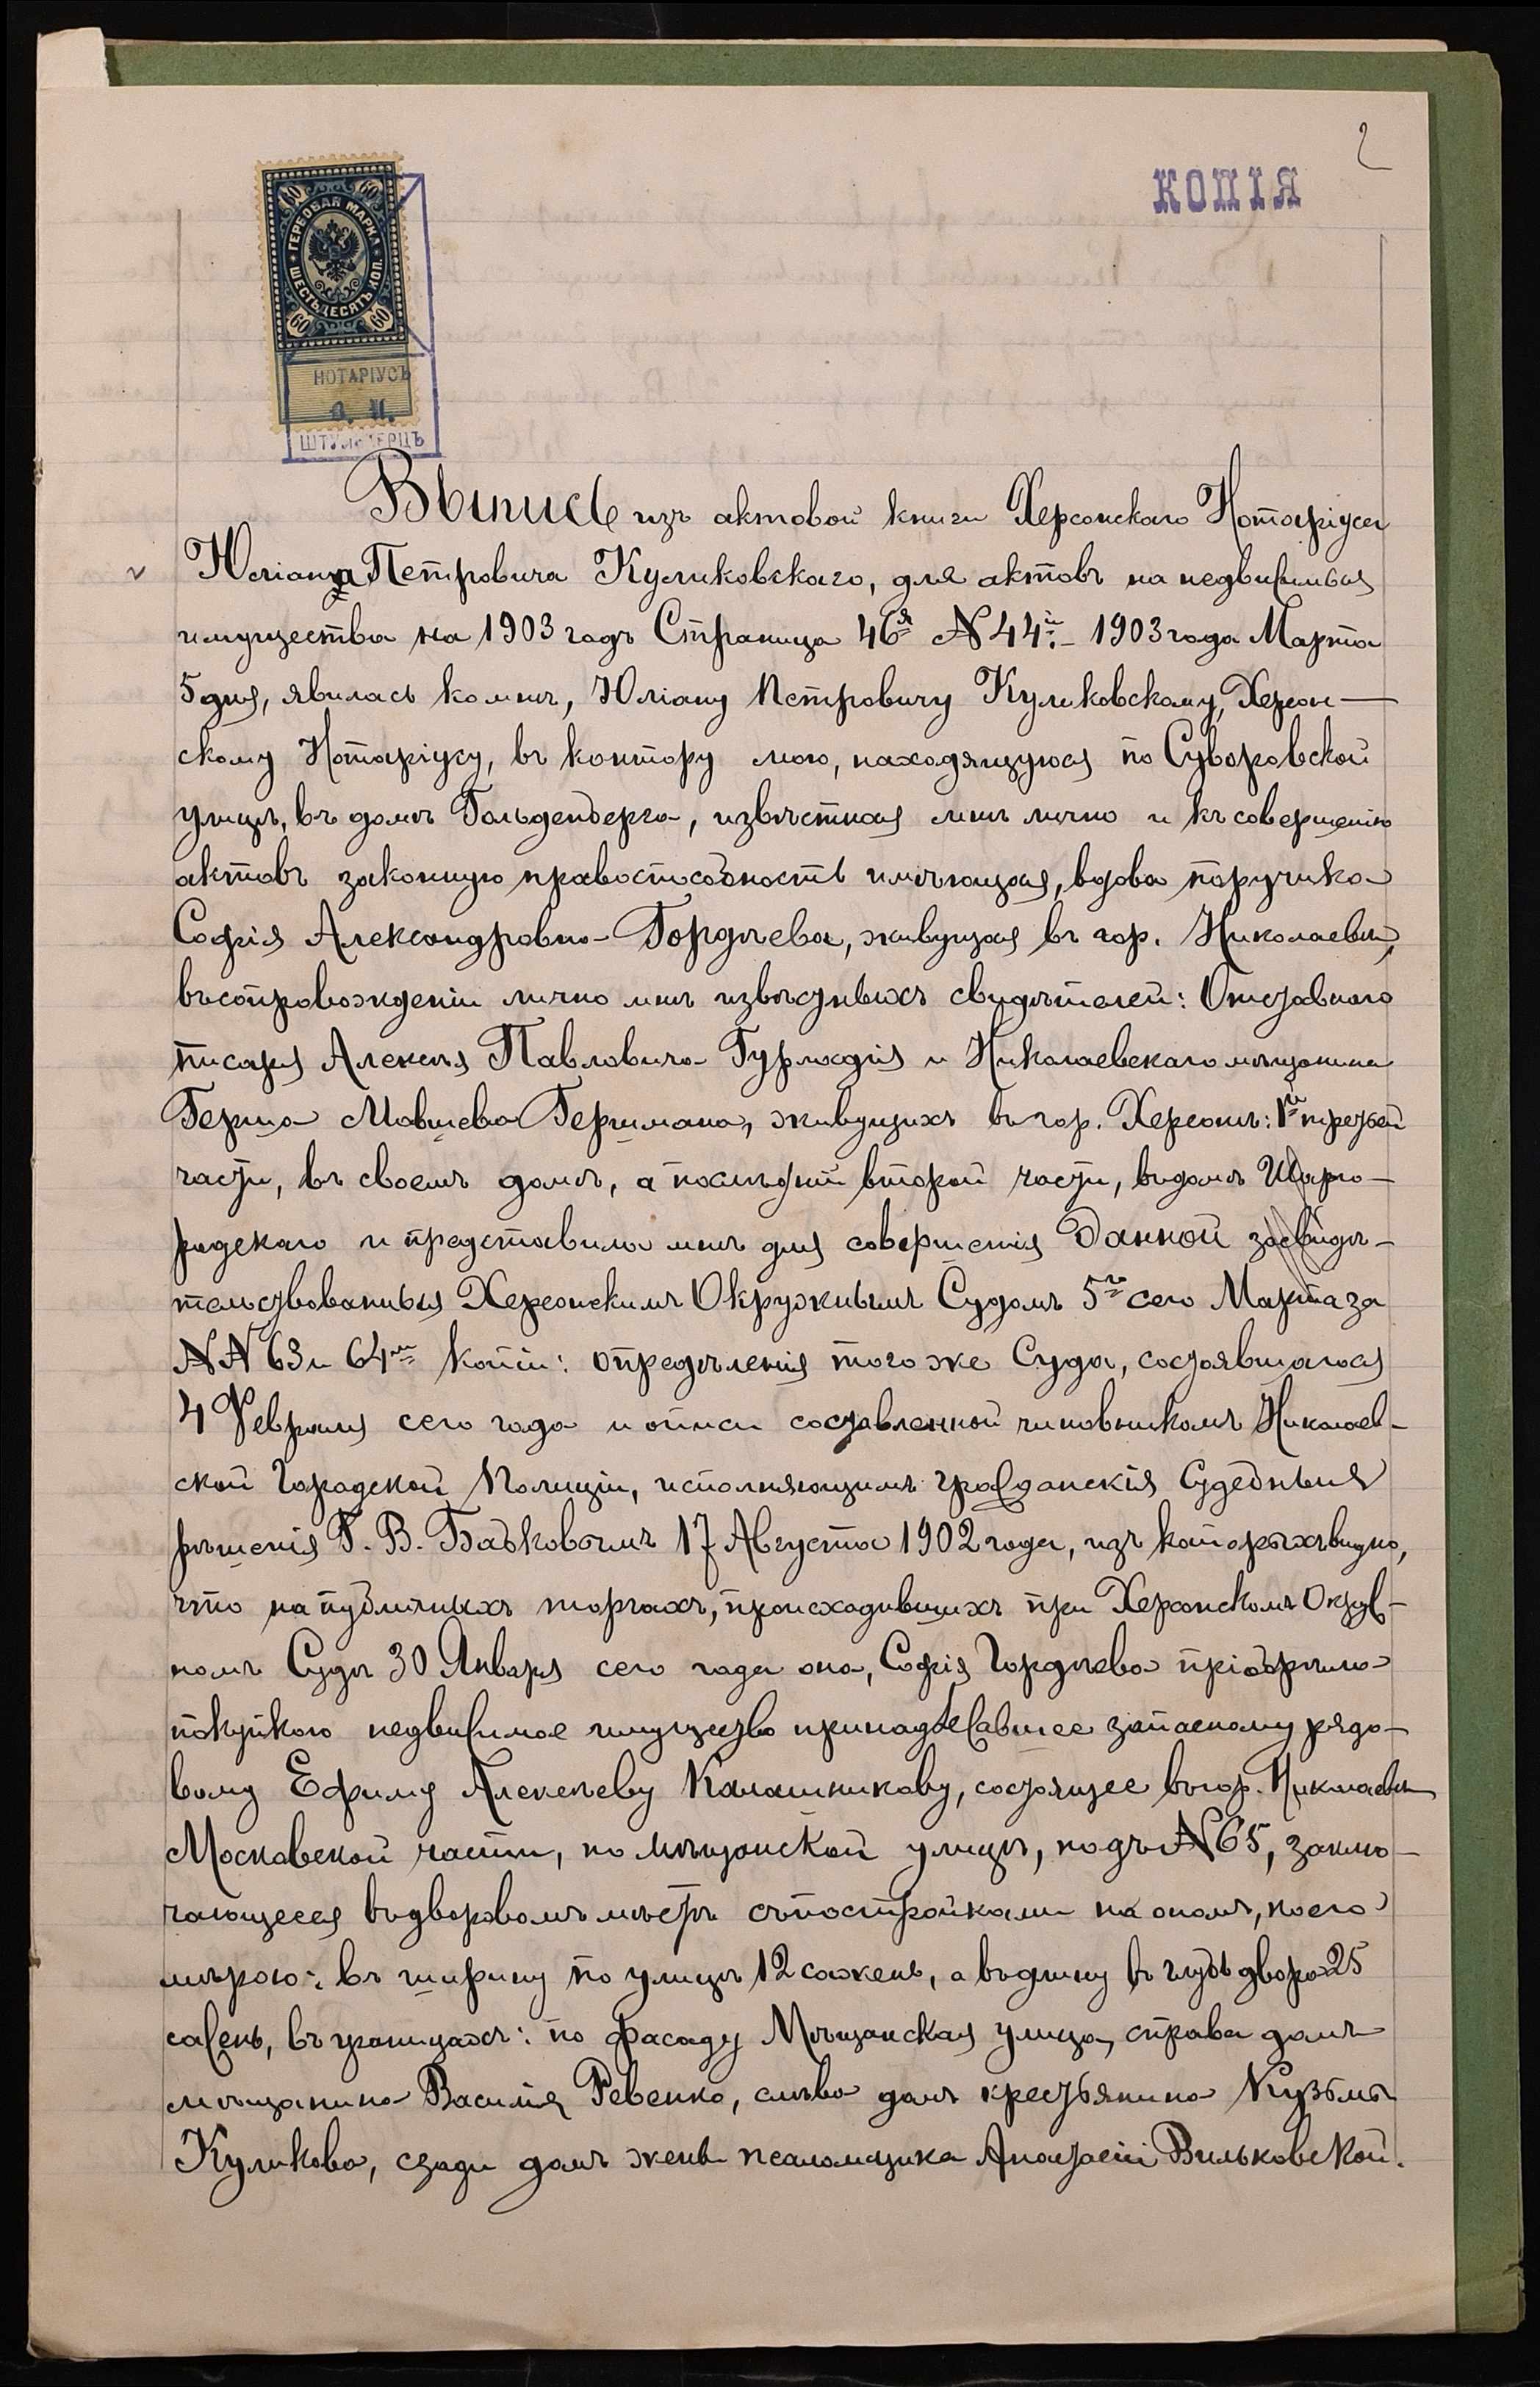 2
КОПІЯ
60 60
ГЕРБОВАЯ МАРКА
ШЕСТЬДЕСЯТЪ КОП.
60 60
НОТАРІУСЪ
ШТУМПФЕРЦЪ
Выпись изъ актовой книги Херсонскаго Нотаріуса
Юліана Петровича Куликовскаго, для актовъ на недвижимыя
имущества на 1903 годъ Страница 46я № 44й. – 1903 года Марта
5 дня, явилась ко мнѣ, Юліану Петровичу Куликовскому, Херсон-
скому Нотаріусу, въ контору мою, находящуюся по Суворовской
улицѣ, въ домѣ Гольденберга, извѣстная мнѣ лично и къ совершенію
актовъ законную правоспособность имѣющая, вдова поручика
Софія Александровна Гордѣева, живущая въ гор. Николаевѣ,
въ сопровожденіи лично мнѣ извѣстныхъ свидѣтелей: Отставного
писаря Алексѣя Павловича и Николаевскаго мѣщанина
Герша Мовшева Гершмана, живущихъ въ гор. Херсонѣ: 1й третьей
части, въ своемъ домѣ, а послѣдній второй части, въ домѣ Шарго-
родскаго и представила мнѣ для совершенія Данной засвидѣ-
тельствованныя Херсонскимъ Окружнымъ Судомъ 5го сего Марта за
№№ 63 и 64ми копіи: опредѣленія того же Суда, состоявшагося
4 Февраля сего года и описи составленной чиновникомъ Николаев-
ской Городской Полиціи, исполняющимъ гражданскія Судебныя
рѣшенія Г. В. Бабковымъ 17 Августа 1902 года, изъ которыхъ видно,
что на публичныхъ торгахъ, происходившихъ при Херсонскомъ Окруж-
номъ Судѣ 30 Января сего года она, Софія Гордѣева пріобрѣла
покупкою недвижимое имущество принадлежавшее запасному рядо-
вому Ефиму Алексѣеву Калашникову, состоящее въ гор. Николаевѣ
Московской части, по Мѣщанской улицѣ, подъ № 65, заклю-
чающееся въ дворовомъ мѣстѣ съ постройками на ономъ, коего
мѣрою: въ ширину по улицѣ 12 сажень, а въ длину въ глубь двора 25
сажень, въ границахъ: по фасаду Мѣщанская улица, справа домъ
мѣщанина Василія Ревенко, слѣва домъ крестьянина Кузьмы
Куликова, сзади домъ жены псаломщика Анастасіи Вильковской.